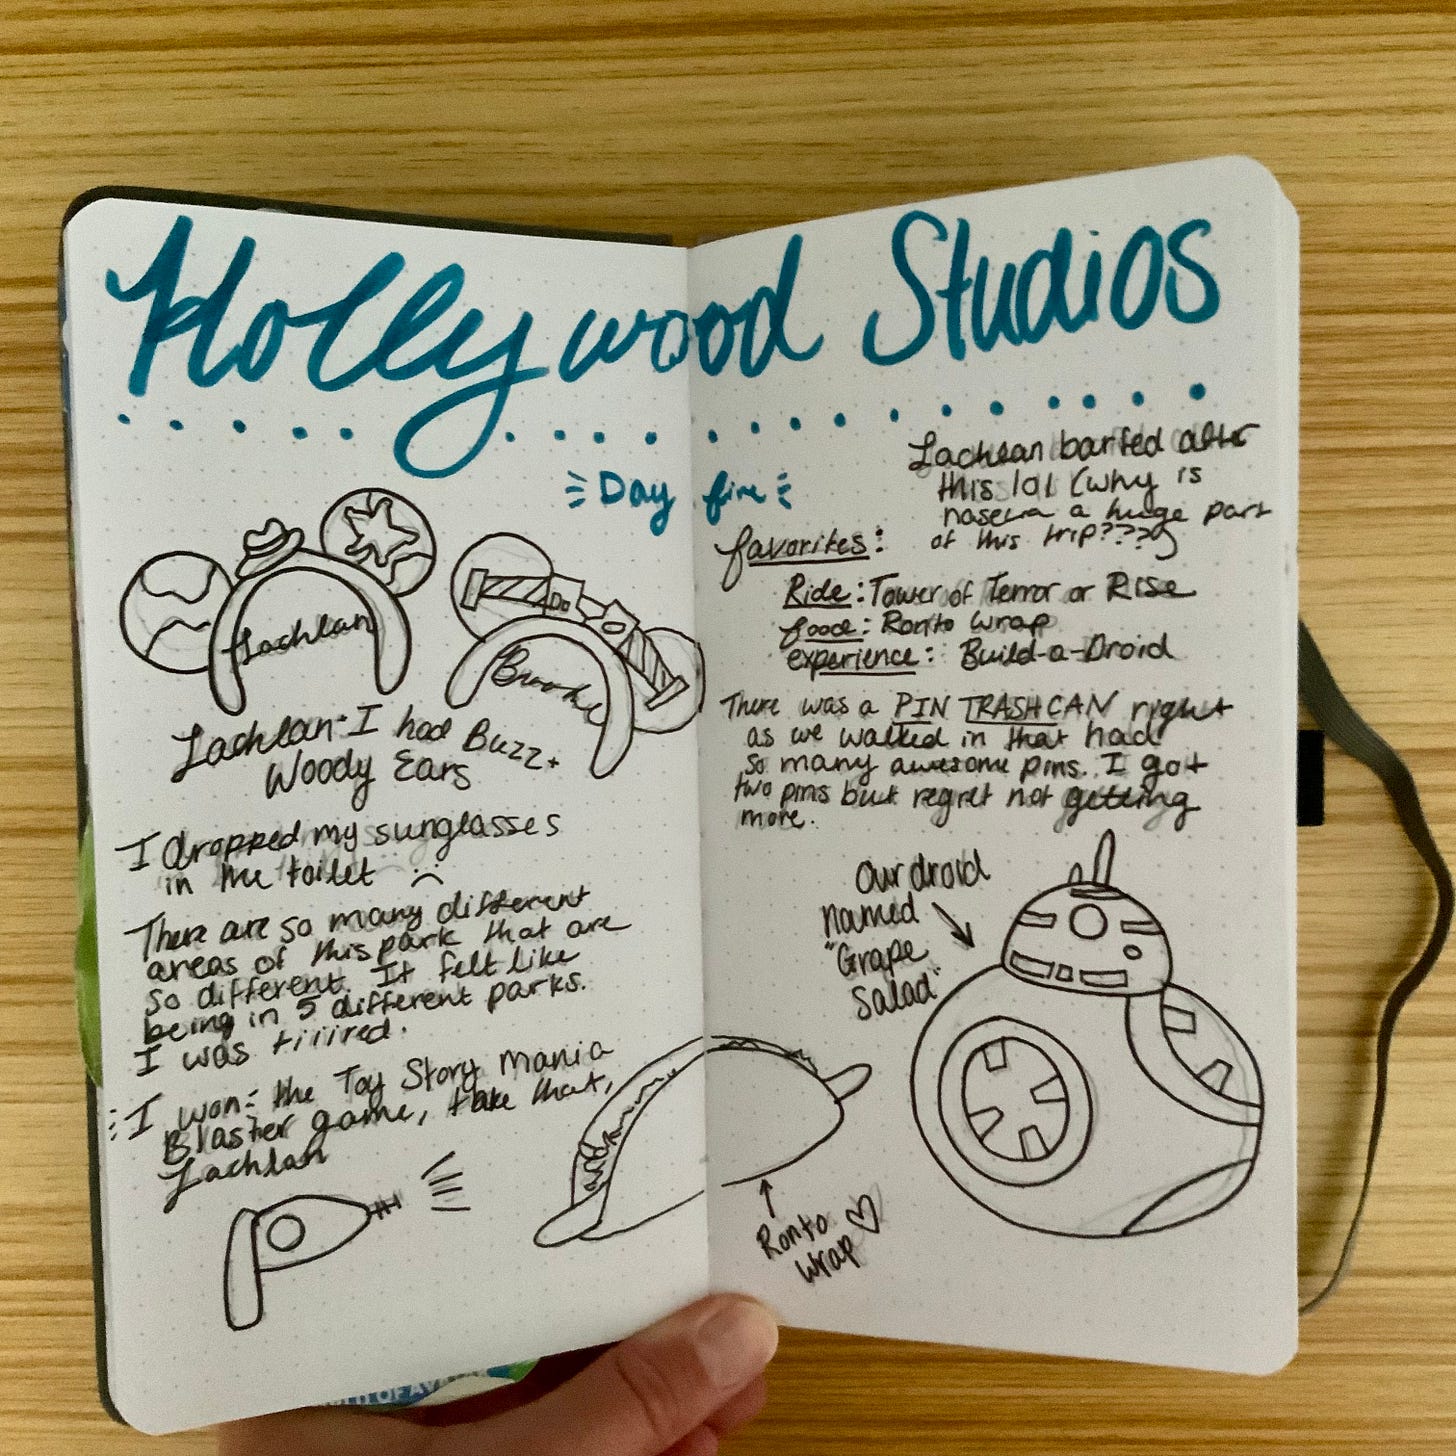 Hollywood Studios
Day five
Lachlan
Brooke
Lachlan + I had Buzz +
Woody Ears
I dropped my sunglasses
in the toilet :(
There are so many different
areas of this park that are
so different. It felt like
being in 5 different parks.
I was tiiiired.
I won the Toy Story Mania
Blaster game, take that,
Lachlan
Lachlan barfed after
this lol (why is
nausea a huge part
of this trip????)
favorites:
Ride: Tower of Terror or Rise
food: Ronto Wrap
experience: Build-a-Droid
There was a PIN TRASHCAN right
as we walked in that had
so many awesome pins. I got
two pins but regret not getting
more.
our droid
named
"Grape
Salad"
Ronto
Wrap ♡